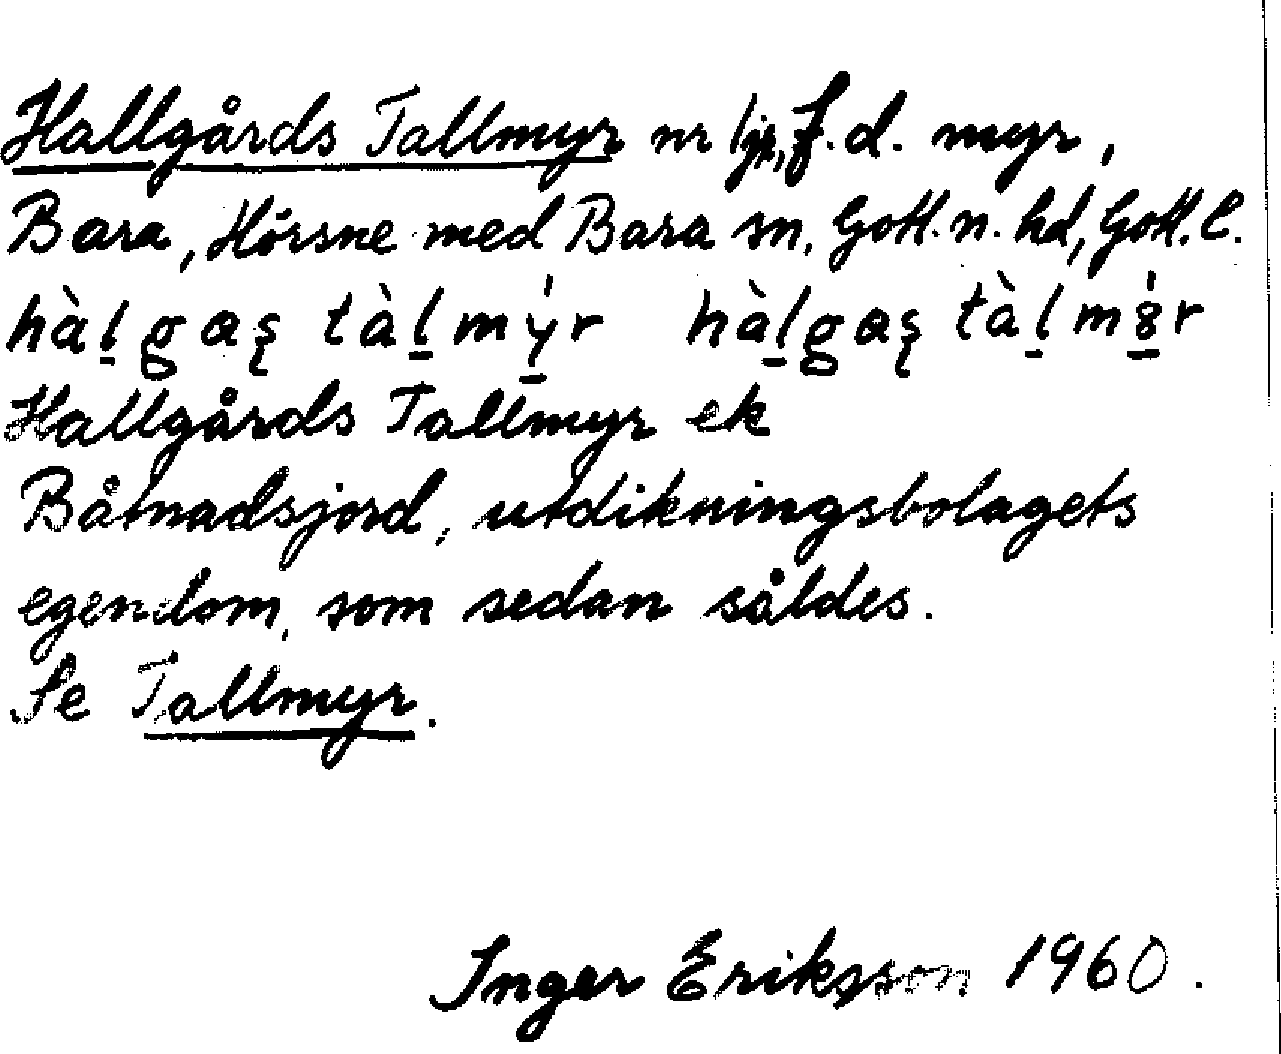 Hallgårds Tallmyr nr ljp, f.d. myr,
Bara, Hörsne med Bara sn, Gotl. n. hd, Gotl. l.
hàl̲gaş tàl̲mý̲r hàl̲gaş tàl̲m8̲́r
Hallgårds Tallmyr ek
Båtnadsjord, utdikningsbolagets
egendom, som sedan såldes.
Se Tallmyr.
Inger Eriksson 1960.